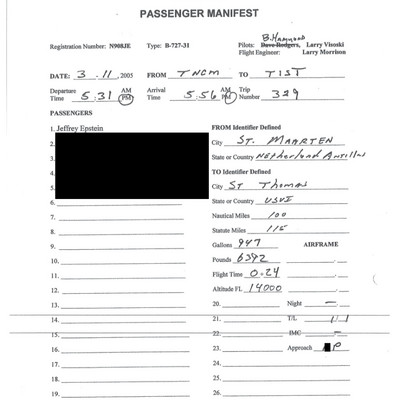 PASSENGER MANIFEST
B. Hammond
Registration Number: N908JE Type: B-727-31 Pilots: Dave Rodgers, Larry Visoski
Flight Engineer: Larry Morrison
DATE: 3.11,2005 FROM TNCM TO TIST
Departure Time 5:31 AM PM Arrival Time 5:56 AM PM Trip Number 329
PASSENGERS
1. Jeffrey Epstein FROM Identifier Defined
2. City ST. MAARTEN
3. State or Country Netherland Antilles
4. TO Identifier Defined
5. City ST Thomas
6. State or Country USVI
7. Nautical Miles 100
8. Statute Miles 115
9. Gallons 947 AIRFRAME
10. Pounds 6392
11. Flight Time 0.24
12. Altitude FL 14000
13. 20. Night -
14. 21. T/L 1/1
15. 22. IMC -
16. 23. Approach P
18. 26.
19.